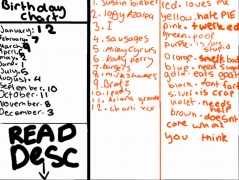 Birthday
chart
January: 12
February: 7
March: 
April: 
May: 2
June: 1
July: 5
August: 4
September: 10
October: 11
November: 8
December: 3
READ
DESC
1. Justin bieber
2. 
3. I
4. sausages
5. Miley Cyrus
6. katy perry
7. targets
8. milkshames
9. Bratz
10. 
11. Ariana grande
12. charli xcx
red. loves me
yellow. hate PIE
pink. twerked
green. poop
purple. is/are
Orange. smells bad
blue. need
gold. eats goat
black. dont fart
silver. is crap
violet. needs help
brown. doesnt
care what
you think